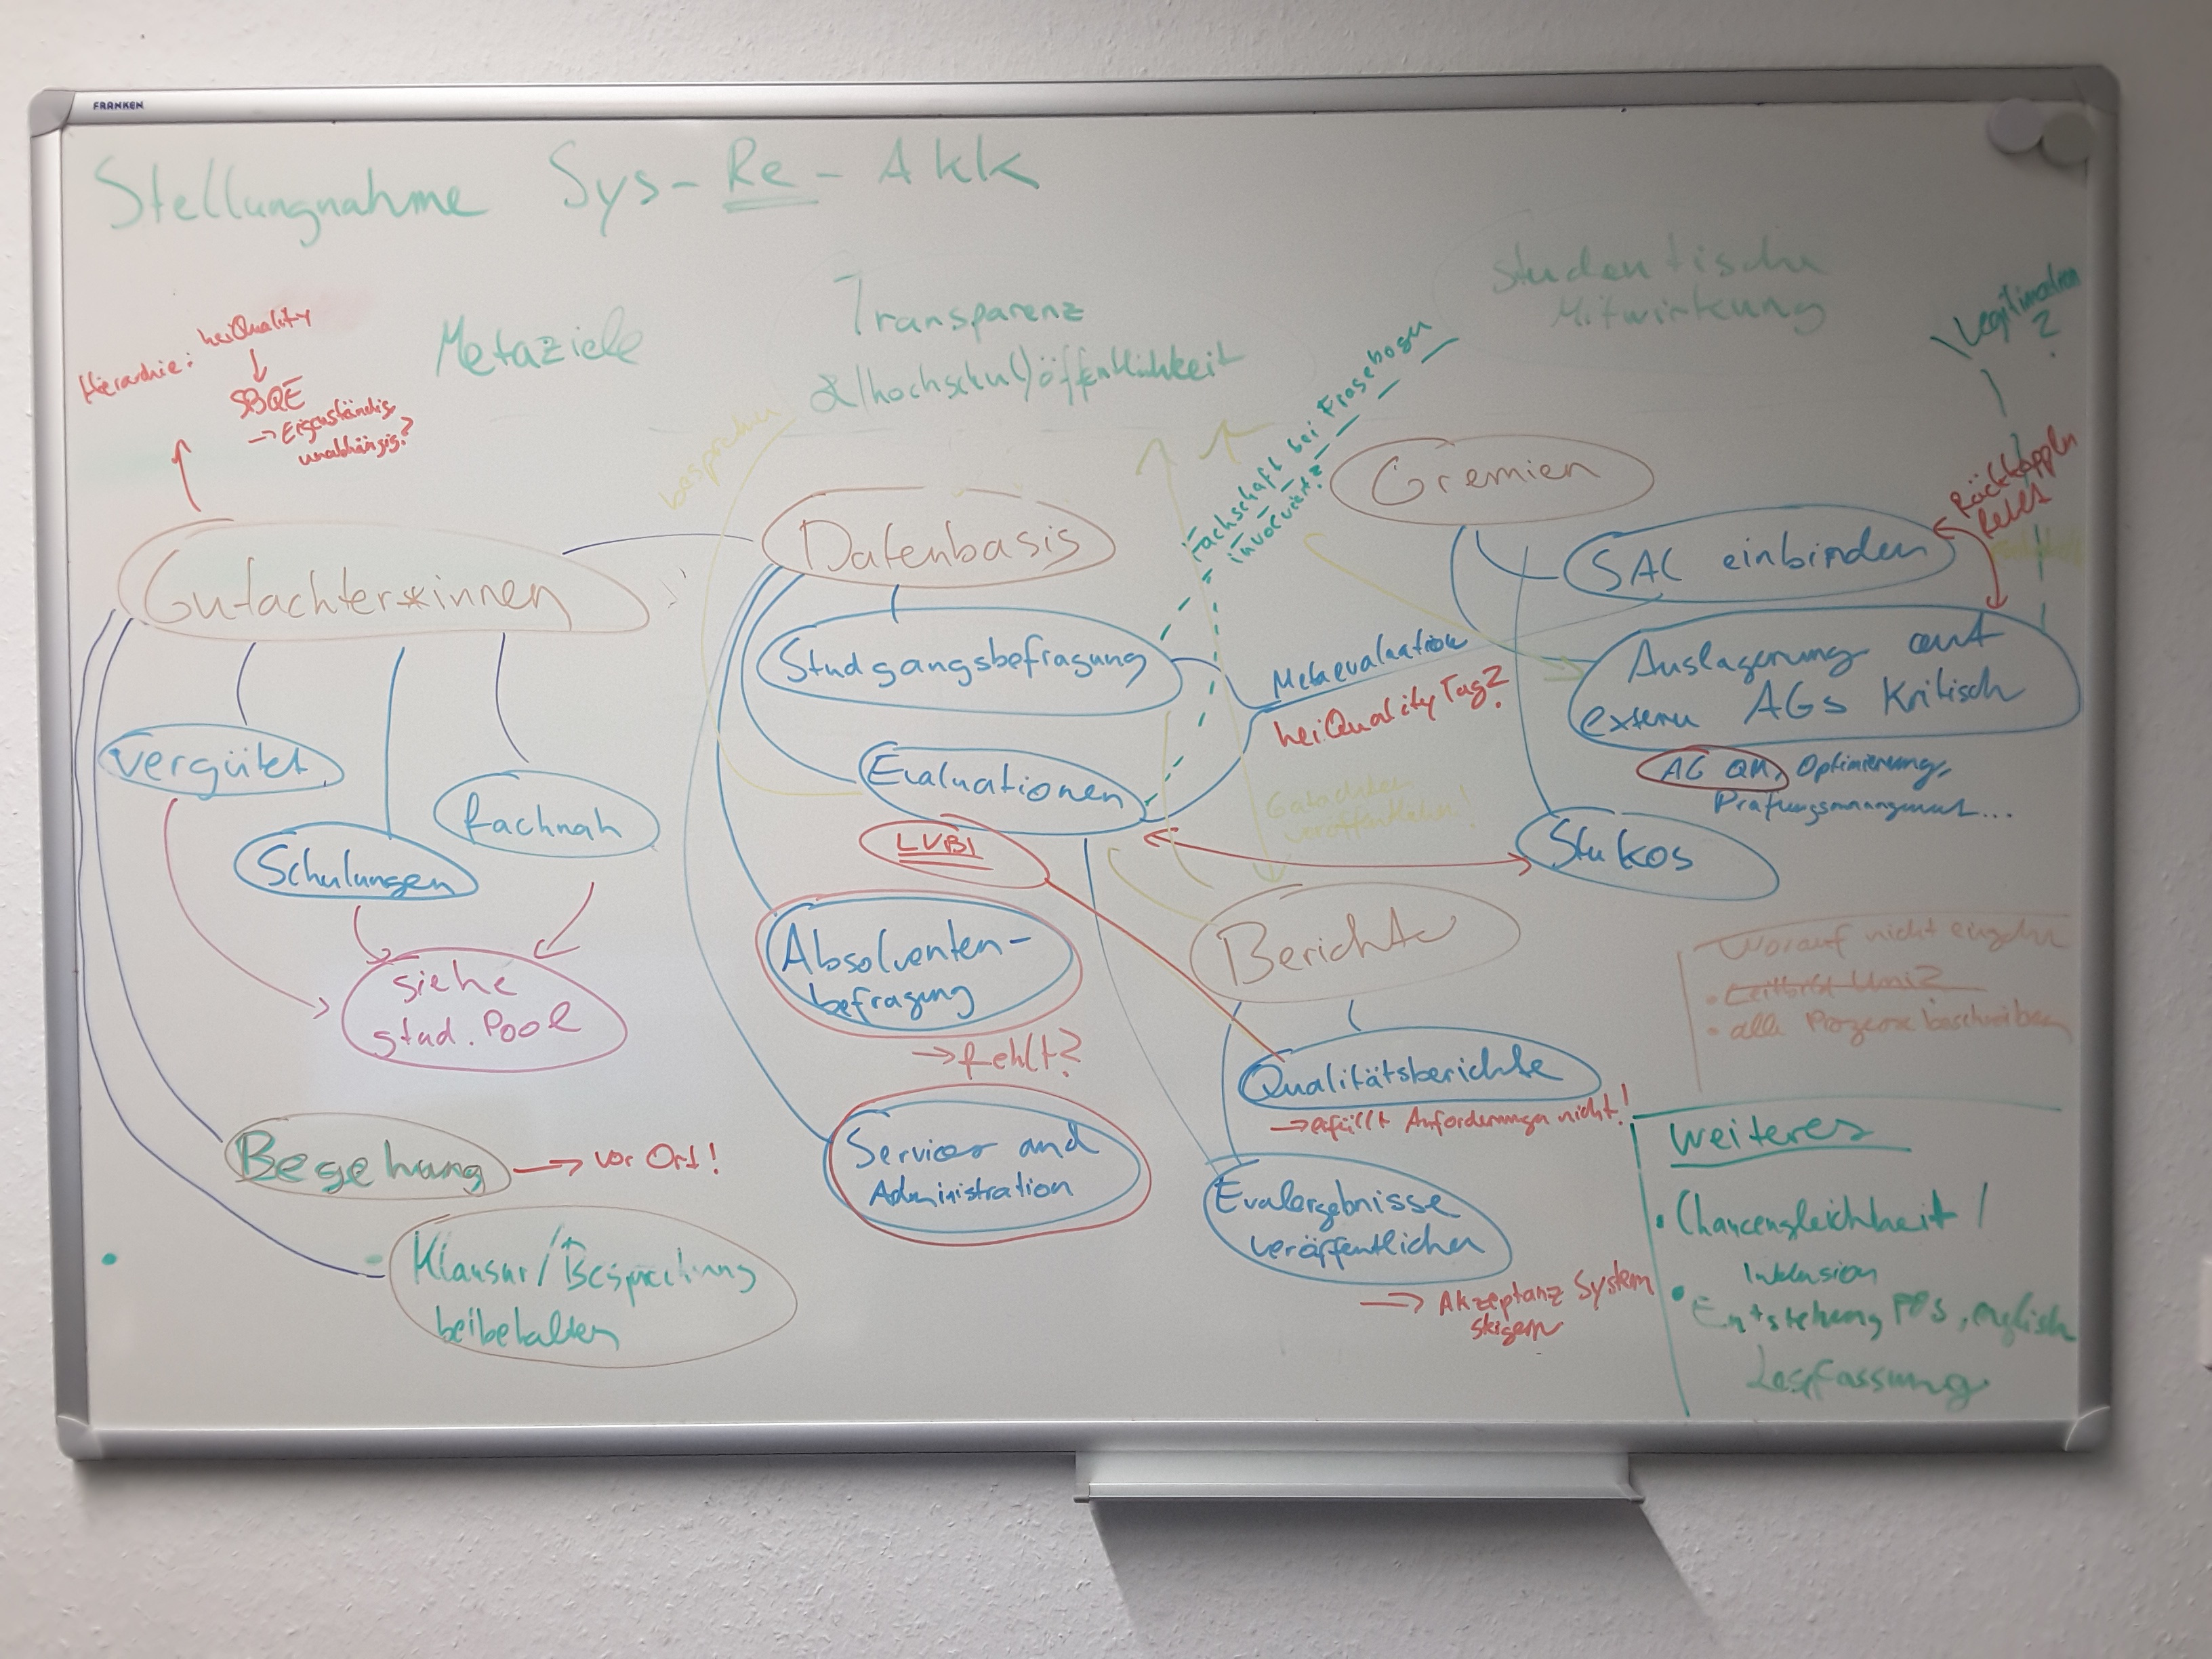 FRANKEN
Stellungnahme Sys-Re-Akk
Metaziele
Transparenz
&/(hochschul)öffentlichkeit
Studentische
Mitwirkung
Legitimation
?
Hierarchie:
heiQuality
SBQE
→ Eigenständig,
unabhängig?
besprechen
Fachschaft bei Fragebogen
involviert?
Rückkoppeln
Gutachter*innen
vergütet
Schulungen
fachnah
siehe
stud. Pool
Begehung → vor Ort!
Klausur/Besprechung
beibehalten
Datenbasis
Studgangsbefragung
Evaluationen
LVBI
Absolventen-
befragung
→ fehlt?
Services and
Administration
Metaevaluation
heiQuality Tag?
Gutachten
veröffentlichen!
Gremien
SAL einbinden
Auslagerung auf
extern AGs kritisch
AG QM, Optimierung,
Prüfungsmanagement...
Stukos
Berichte
Qualitätsberichte
→ erfüllt Anforderungen nicht!
Evalergebnisse
veröffentlichen
→ Akzeptanz System
steigern
Worauf nicht eingehen
• Leitbild Uni?
• alle Prozesse beschreiben
Weiteres
• Chancengleichheit /
Inklusion
• Entstehung POs, englisch
Lesfassung